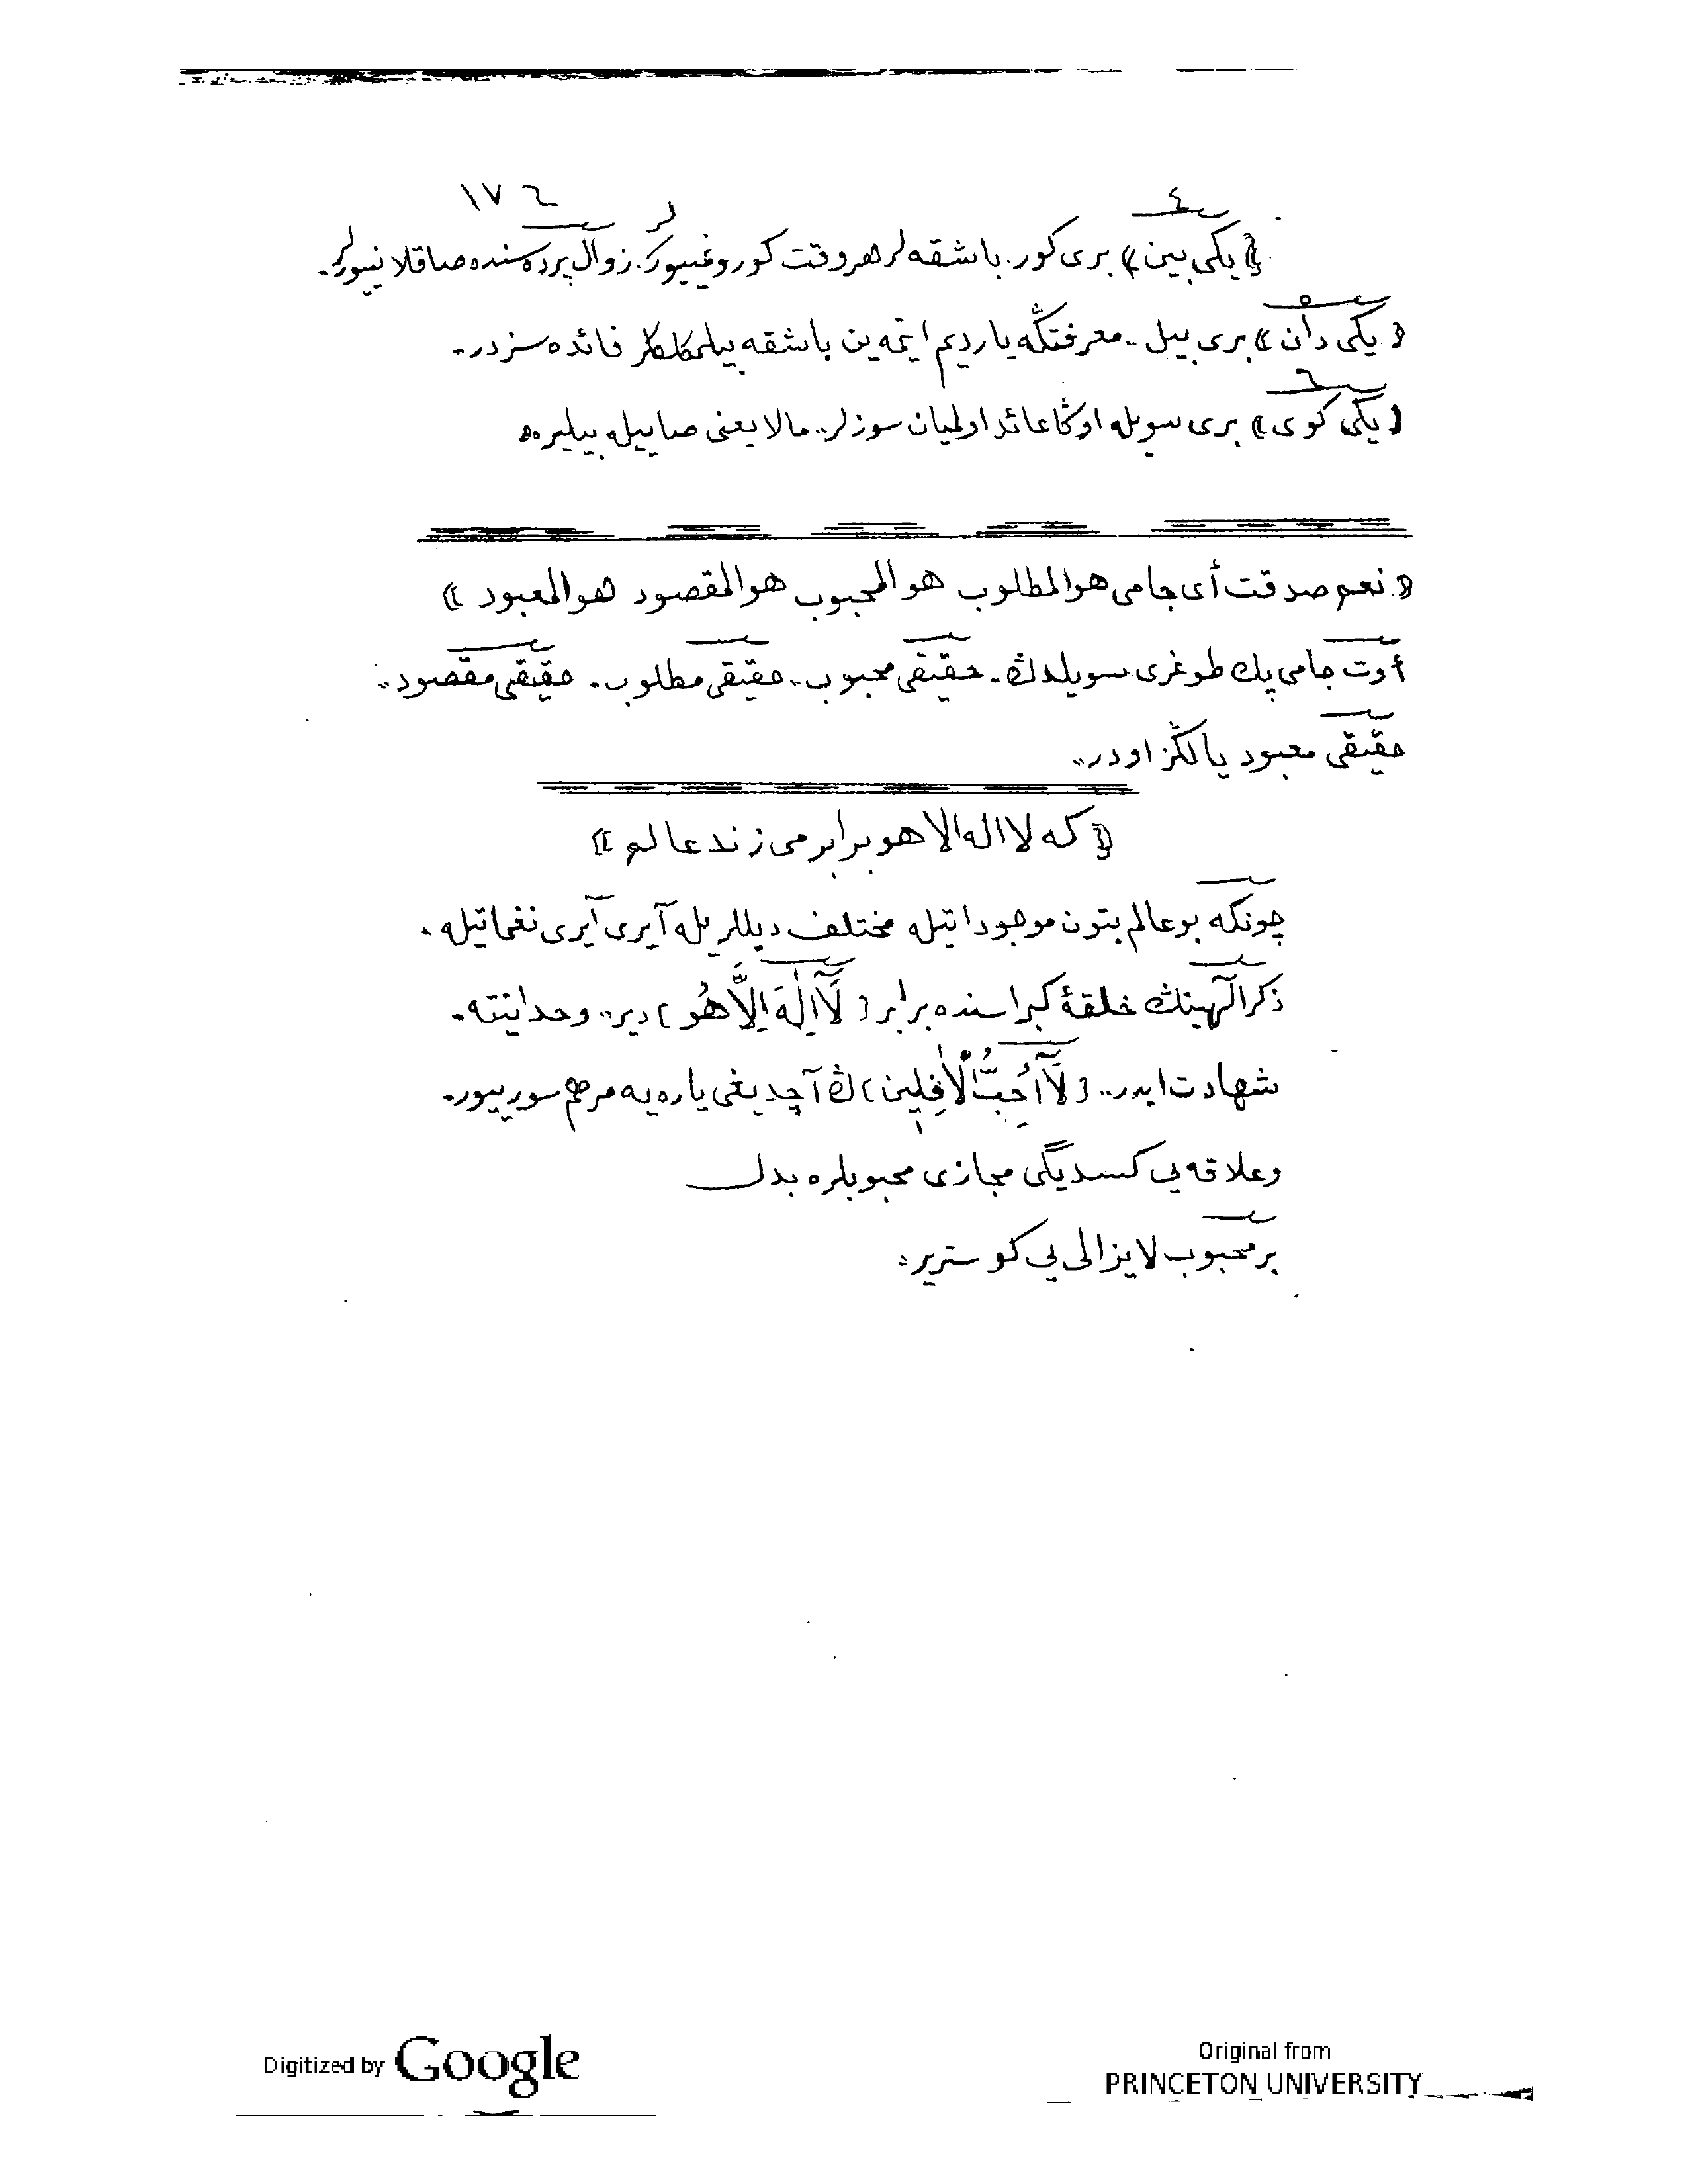 ١٧٦
٤
﴿يكى بين﴾ برى كور. باشقه لر هر وقت كورونمييورلر. زوال پرده سنده صاقلانييورلر.
٥
﴿يكى دان﴾ برى بيل.. معرفتڭه يارديم ايتمه ين باشقه بيلمكلكلر فائده سزدر..
٦
﴿يكى كوى﴾ برى سويله اوڭا عائد اولميان سوزلر.. مالا يعنى صاييله بيلير..
﴿نعم صدقت أى جامى هو المطلوب هو المحبوب هو المقصود هو المعبود﴾
أوت جامى پك طوغرى سويلدڭ. حقيقى محبوب.. حقيقى مطلوب. حقيقى مقصود..
حقيقى معبود يالڭز اودر..
﴿كه لا اله الا هو برابر مى زند عالم﴾
چونكه بو عالم بتون موجوداتيله مختلف ديللريله آيرى آيرى نغماتيله.
ذكر الٓهينڭ حلقهٔ كبراسنده برابر ﴿لَٓا اِلٰهَ اِلَّا هُوَ﴾ دير.. وحدانيته.
شهادت ايدر.. ﴿لَٓا اُحِبُّ الْاٰفِلِين﴾ ڭ آچديغى ياره يه مرهم سورييور.
وعلاقه يى كسديگى مجازى محبوبلره بدل
بر محبوب لايزالى يى كوسترير:
Digitized by Google
Original from
PRINCETON UNIVERSITY